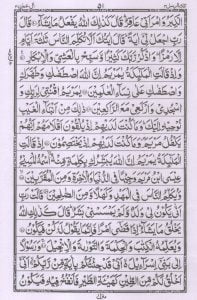 الْكِبَرُ وَامْرَاَتِيْ عَاقِرٌ قَالَ كَذٰلِكَ اللّٰهُ يَفْعَلُ مَا يَشَآءُ قَالَ
رَبِّ اجْعَلْ لِّيْ اٰيَةً قَالَ اٰيَتُكَ اَلَّا تُكَلِّمَ النَّاسَ ثَلٰثَةَ اَيَّامٍ
اِلَّا رَمْزًا وَاذْكُرْ رَّبَّكَ كَثِيْرًا وَّسَبِّحْ بِالْعَشِيِّ وَالْاِبْكَارِ
وَاِذْ قَالَتِ الْمَلٰٓئِكَةُ يٰمَرْيَمُ اِنَّ اللّٰهَ اصْطَفٰىكِ وَطَهَّرَكِ
وَاصْطَفٰىكِ عَلٰى نِسَآءِ الْعٰلَمِيْنَ يٰمَرْيَمُ اقْنُتِيْ لِرَبِّكِ وَ
اسْجُدِيْ وَارْكَعِيْ مَعَ الرّٰكِعِيْنَ ذٰلِكَ مِنْ اَنْۢبَآءِ الْغَيْبِ
نُوْحِيْهِ اِلَيْكَ وَمَا كُنْتَ لَدَيْهِمْ اِذْ يُلْقُوْنَ اَقْلَامَهُمْ اَيُّهُمْ
يَكْفُلُ مَرْيَمَ وَمَا كُنْتَ لَدَيْهِمْ اِذْ يَخْتَصِمُوْنَ اِذْ قَالَتِ
الْمَلٰٓئِكَةُ يٰمَرْيَمُ اِنَّ اللّٰهَ يُبَشِّرُكِ بِكَلِمَةٍ مِّنْهُ اسْمُهُ الْمَسِيْحُ
عِيْسَى ابْنُ مَرْيَمَ وَجِيْهًا فِي الدُّنْيَا وَالْاٰخِرَةِ وَمِنَ الْمُقَرَّبِيْنَ
وَيُكَلِّمُ النَّاسَ فِي الْمَهْدِ وَكَهْلًا وَّمِنَ الصّٰلِحِيْنَ قَالَتْ رَبِّ
اَنّٰى يَكُوْنُ لِيْ وَلَدٌ وَّلَمْ يَمْسَسْنِيْ بَشَرٌ قَالَ كَذٰلِكِ اللّٰهُ
يَخْلُقُ مَا يَشَآءُ اِذَا قَضٰٓى اَمْرًا فَاِنَّمَا يَقُوْلُ لَهٗ كُنْ فَيَكُوْنُ
وَيُعَلِّمُهُ الْكِتٰبَ وَالْحِكْمَةَ وَالتَّوْرٰىةَ وَالْاِنْجِيْلَ وَرَسُوْلًا
اِلٰى بَنِيْٓ اِسْرَآءِيْلَ اَنِّيْ قَدْ جِئْتُكُمْ بِاٰيَةٍ مِّنْ رَّبِّكُمْ اَنِّيْٓ
اَخْلُقُ لَكُمْ مِّنَ الطِّيْنِ كَهَيْئَةِ الطَّيْرِ فَاَنْفُخُ فِيْهِ فَيَكُوْنُ